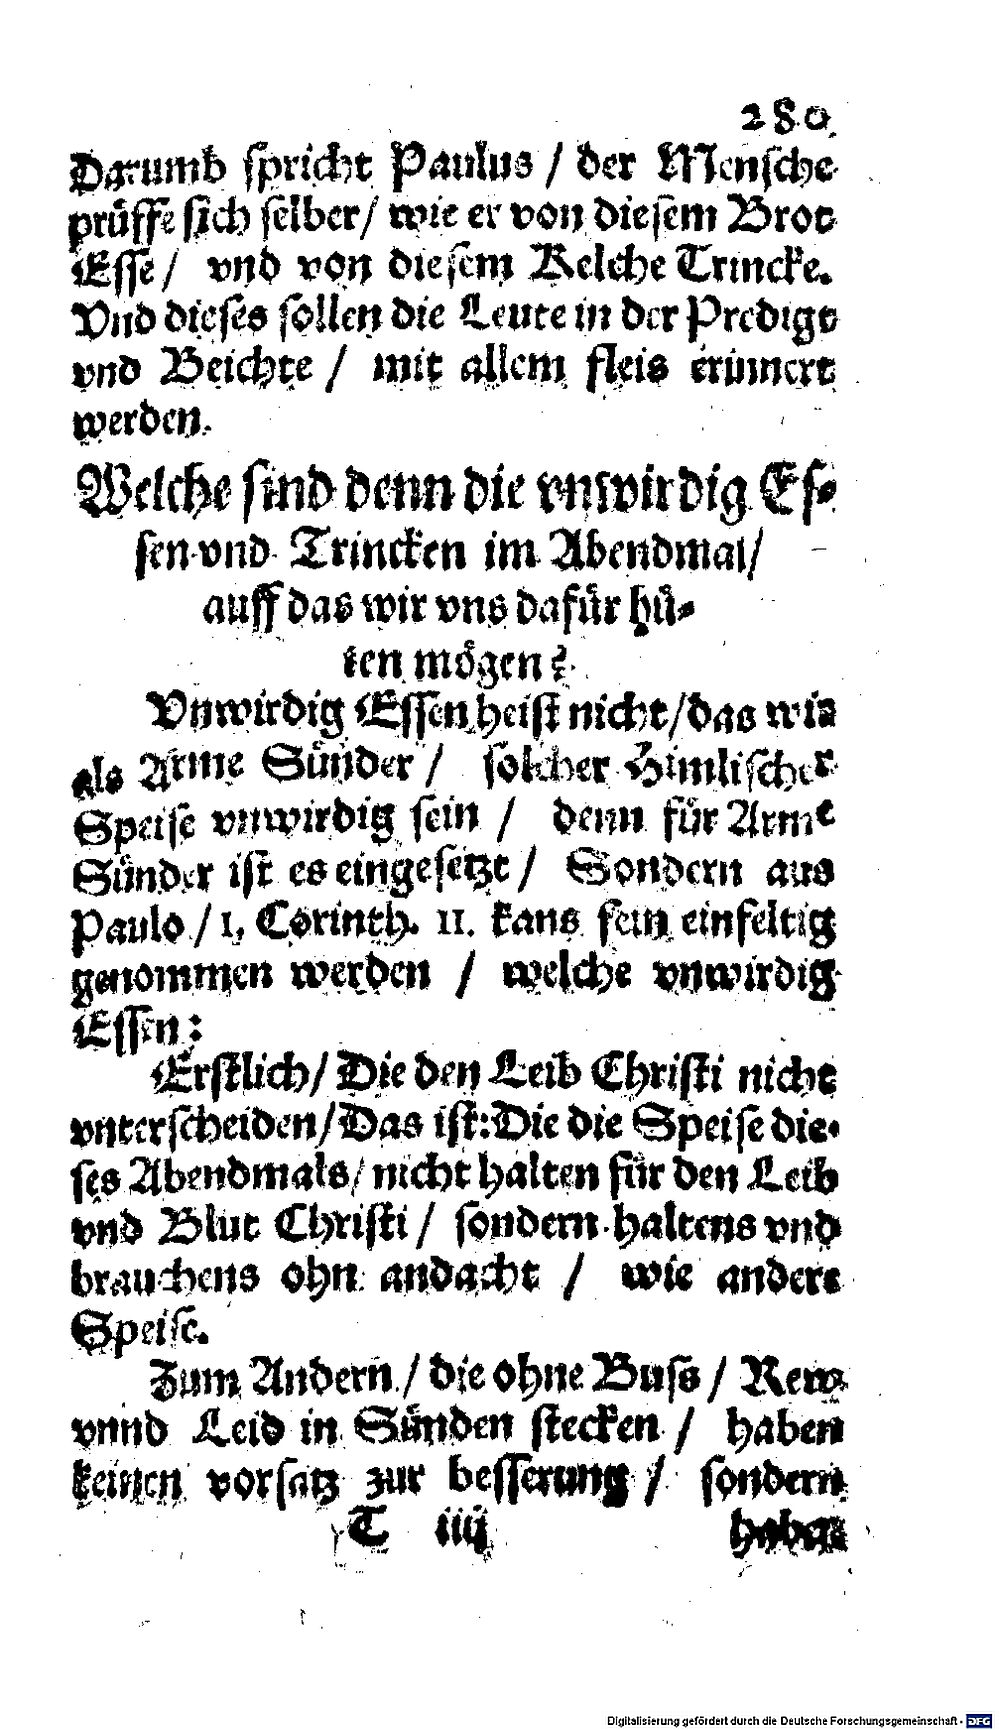 280
Darumb spricht Paulus / der Mensche
prüffe sich selber / wie er von diesem Brot
Esse / vnd von diesem Kelche Trincke.
Vnd dieses sollen die Leute in der Predigt
vnd Beichte / mit allem fleis erinnert
werden.
Welche sind denn die vnwirdig Es-
sen vnd Trincken im Abendmal /
auff das wir vns dafür hü-
ten mögen?
Vnwirdig Essen heist nicht / das wir
als Arme Sünder / solcher Himlischer
Speise vnwirdig sein / denn für Arme
Sünder ist es eingesetzt / Sondern aus
Paulo / 1. Corinth. 11. kans fein einfeltig
genommen werden / welche vnwirdig
Essen:
Erstlich / Die den Leib Christi nicht
vnterscheiden / Das ist: Die die Speise die-
ses Abendmals / nicht halten für den Leib
vnd Blut Christi / sondern haltens vnd
brauchens ohn andacht / wie andere
Speise.
Zum Andern / die ohne Buss / Rew
vnnd Leid in Sünden stecken / haben
keinen vorsatz zur besserung / sondern
T iiij haben
Digitalisierung gefördert durch die Deutsche Forschungsgemeinschaft - DFG